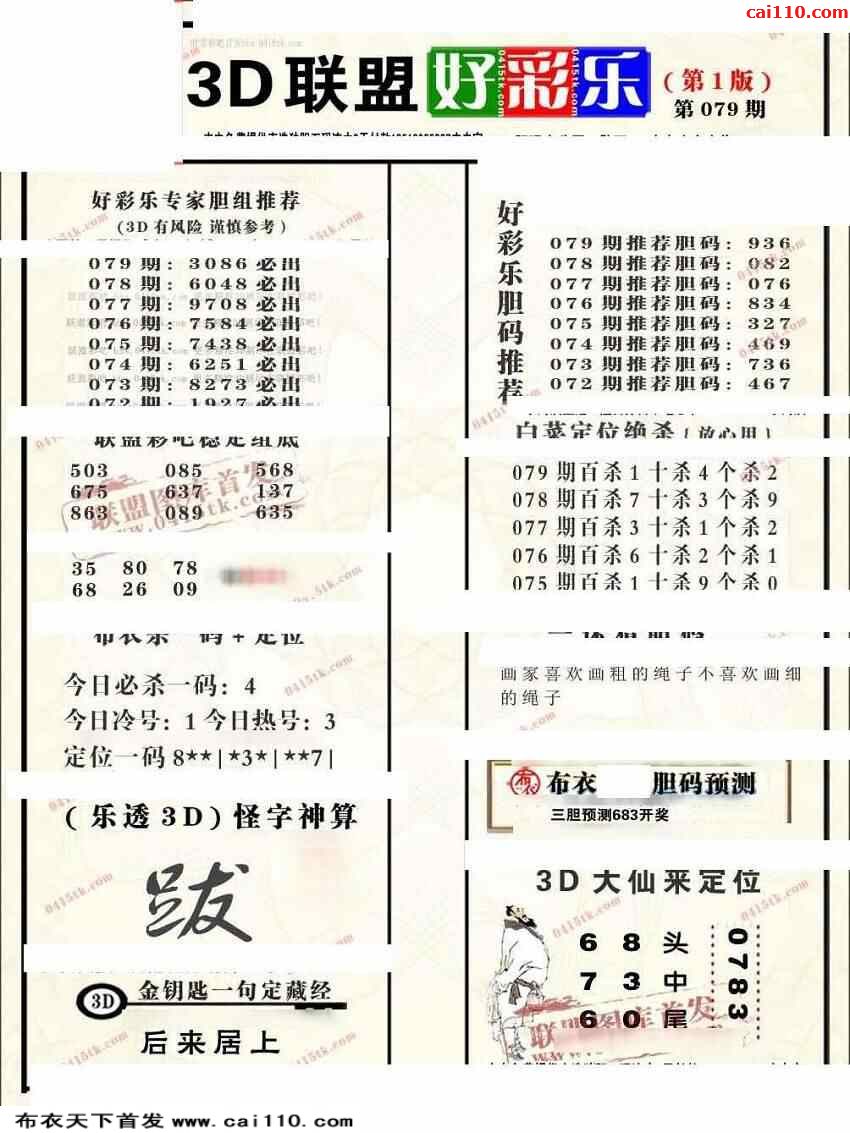 cai110.com
3D联盟好彩乐
(第1版)
第 079 期
好彩乐专家胆组推荐
(3D有风险 谨慎参考)
079期: 3086必出
078期: 6048必出
077期: 9708必出
076期: 7584必出
075期: 7438必出
074期: 6251必出
073期: 8273必出
072期: 1927必出
联盟彩吧稳定组底
503 085 568
675 637 137
863 089 635
联盟图库首发
www.0415tk.com
35 80 78
68 26 09
布衣杀一码+定位
今日必杀一码: 4
今日冷号: 1 今日热号: 3
定位一码 8**|*3*|**7|
(乐透3D)怪字神算
跋
3D 金钥匙一句定藏经
后来居上
好彩乐胆码推荐
079期推荐胆码: 936
078期推荐胆码: 082
077期推荐胆码: 076
076期推荐胆码: 834
075期推荐胆码: 327
074期推荐胆码: 469
073期推荐胆码: 736
072期推荐胆码: 467
白菜定位绝杀(放心用)
079期百杀1十杀4个杀2
078期百杀7十杀3个杀9
077期百杀3十杀1个杀2
076期百杀6十杀2个杀1
075期百杀1十杀9个杀0
画家喜欢画粗的绳子不喜欢画细
的绳子
布衣 布衣 胆码预测
三胆预测683开奖
3D大仙来定位
6 8 头
7 3 中
6 0 尾
0783
联盟图库首发
0415tk.com
布衣天下首发 www.cai110.com